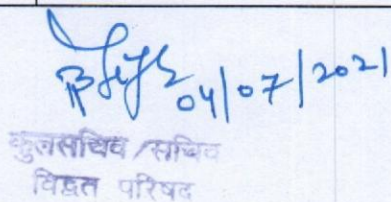 04/07/2021
कुलसचिव /सचिव
विद्वत परिषद